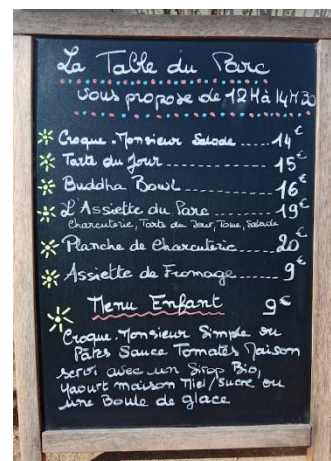 La Table du Parc
vous propose de 12H à 14H30
Croque-Monsieur Salade ..... 14€
Tarte du Jour ............... 15€
Buddha Bowl ............... 16€
L'Assiette du Parc ......... 19€
Charcuterie, Tarte du Jour, Tome, Salade
Planche de Charcuterie .... 20€
Assiette de Fromage ....... 9€
Menu Enfant 9€
Croque-Monsieur Simple ou
Pâtes Sauce Tomates Maison
servi avec un Sirop Bio,
Yaourt maison Miel/Sucre ou
une Boule de glace